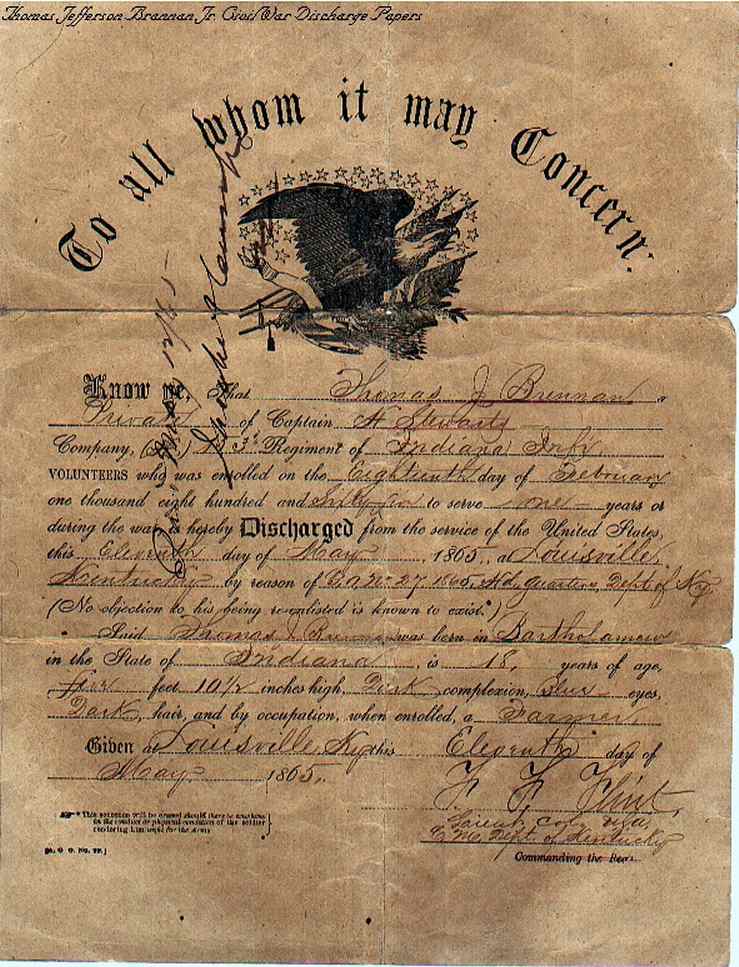 Thomas Jefferson Brannan, Jr. Civil War Discharge Papers
To all whom it may Concern:
Know ye, That Thomas J Brennan a
Private of Captain Stewarts
Company, ( ) Regiment of Indiana Inf
VOLUNTEERS who was enrolled on the Eighteenth day of February
one thousand eight hundred and to serve one years or
during the war is hereby Discharged from the service of the United States,
this Eleventh day of May, 1865, at Louisville,
Kentucky by reason of 27 1865, Hd. quarters, Dept of Ky
(No objection to his being reenlisted is known to exist.*)
Said Thomas J Brennan was born in Bartholamew
in the State of Indiana, is 18, years of age,
five feet 10 1/2 inches high, Dark complexion, Blue eyes,
Dark, hair, and by occupation, when enrolled, a Farmer.
Given at Louisville, Ky this Eleventh day of
May 1865.
F. F. Flint,
Lieut. Col.
Dept. of Kentucky
Commanding the
* This sentence will be erased should there be anything
in the conduct or physical condition of the soldier
rendering him unfit for the Army